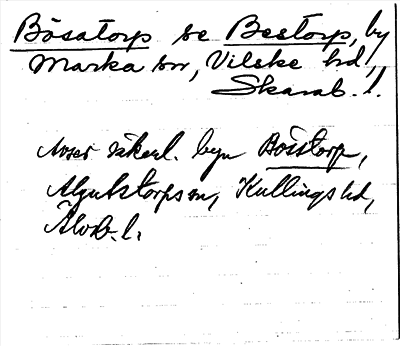 Bösatorp se Bestorp, by
Marka sn, Vilske hd,
Skarab. l.
Avser säkerl. byn Bösstorp,
Algutstorps sn, Kullings hd,
Älvsb. l.